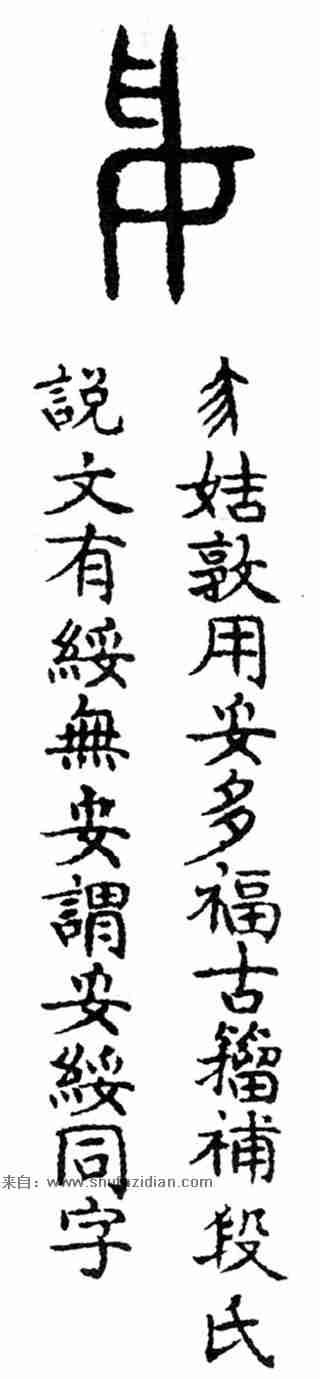 姞敦用妥多福古籀補段氏
說文有綏無妥謂妥綏同字
来自：www.shufazidian.com